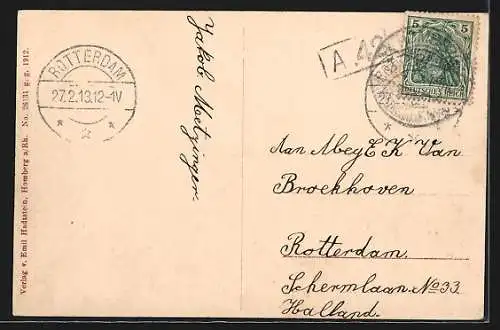 Verlag v. Emil Hadstein, Homberg a/Rh. No. 26131 g. g. 1912.
ROTTERDAM
27.2.13.12-1V
Jakob Metzinger.
A.42
5 5
DEUTSCHES REICH
Aan Mbey E K Van
Broekhoven
Rotterdam.
Schermlaan. No 33
Halland.